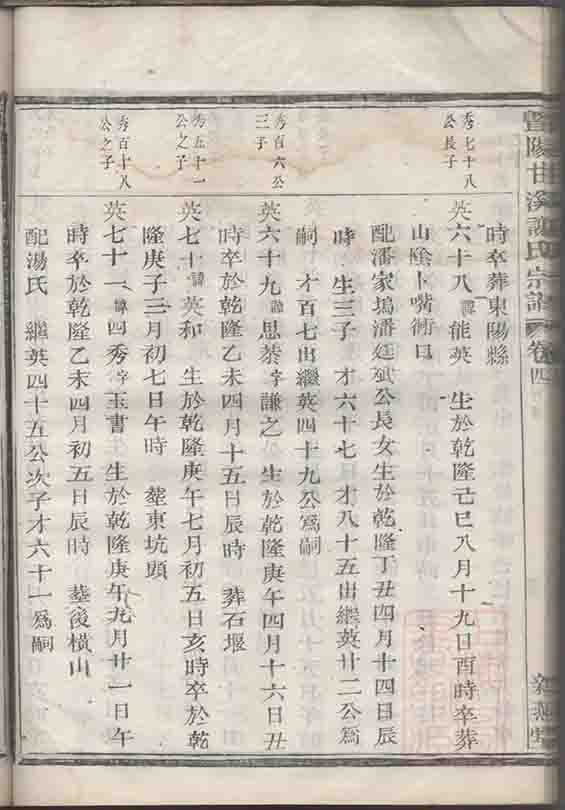 暨陽甘溪謝氏宗譜 卷四
時卒葬東陽縣
秀七十八
公長子
英六十八 諱能英 生於乾隆己巳八月十九日酉時卒葬
山陰卜嘴衕口
配潘家塢潘廷斌公長女生於乾隆丁丑四月十四日辰
時 生三子 才六十七 才八十五出繼英廿二公爲
嗣 才百七出繼英四十九公爲嗣
秀百六公
三子
英六十九 諱思恭字謙之 生於乾隆庚午四月十六日丑
時卒於乾隆乙未四月十五日辰時 葬石堰
秀五十一
公之子
英七十 諱英和 生於乾隆庚午七月初五日亥時卒於乾
隆庚子三月初七日午時 葬東坑頭
秀百十八
公之子
英七十一 諱四秀字玉書 生於乾隆庚午九月廿一日午
時卒於乾隆乙未四月初五日辰時 葬後橫山
配湯氏 繼英四十五公次子才六十一爲嗣